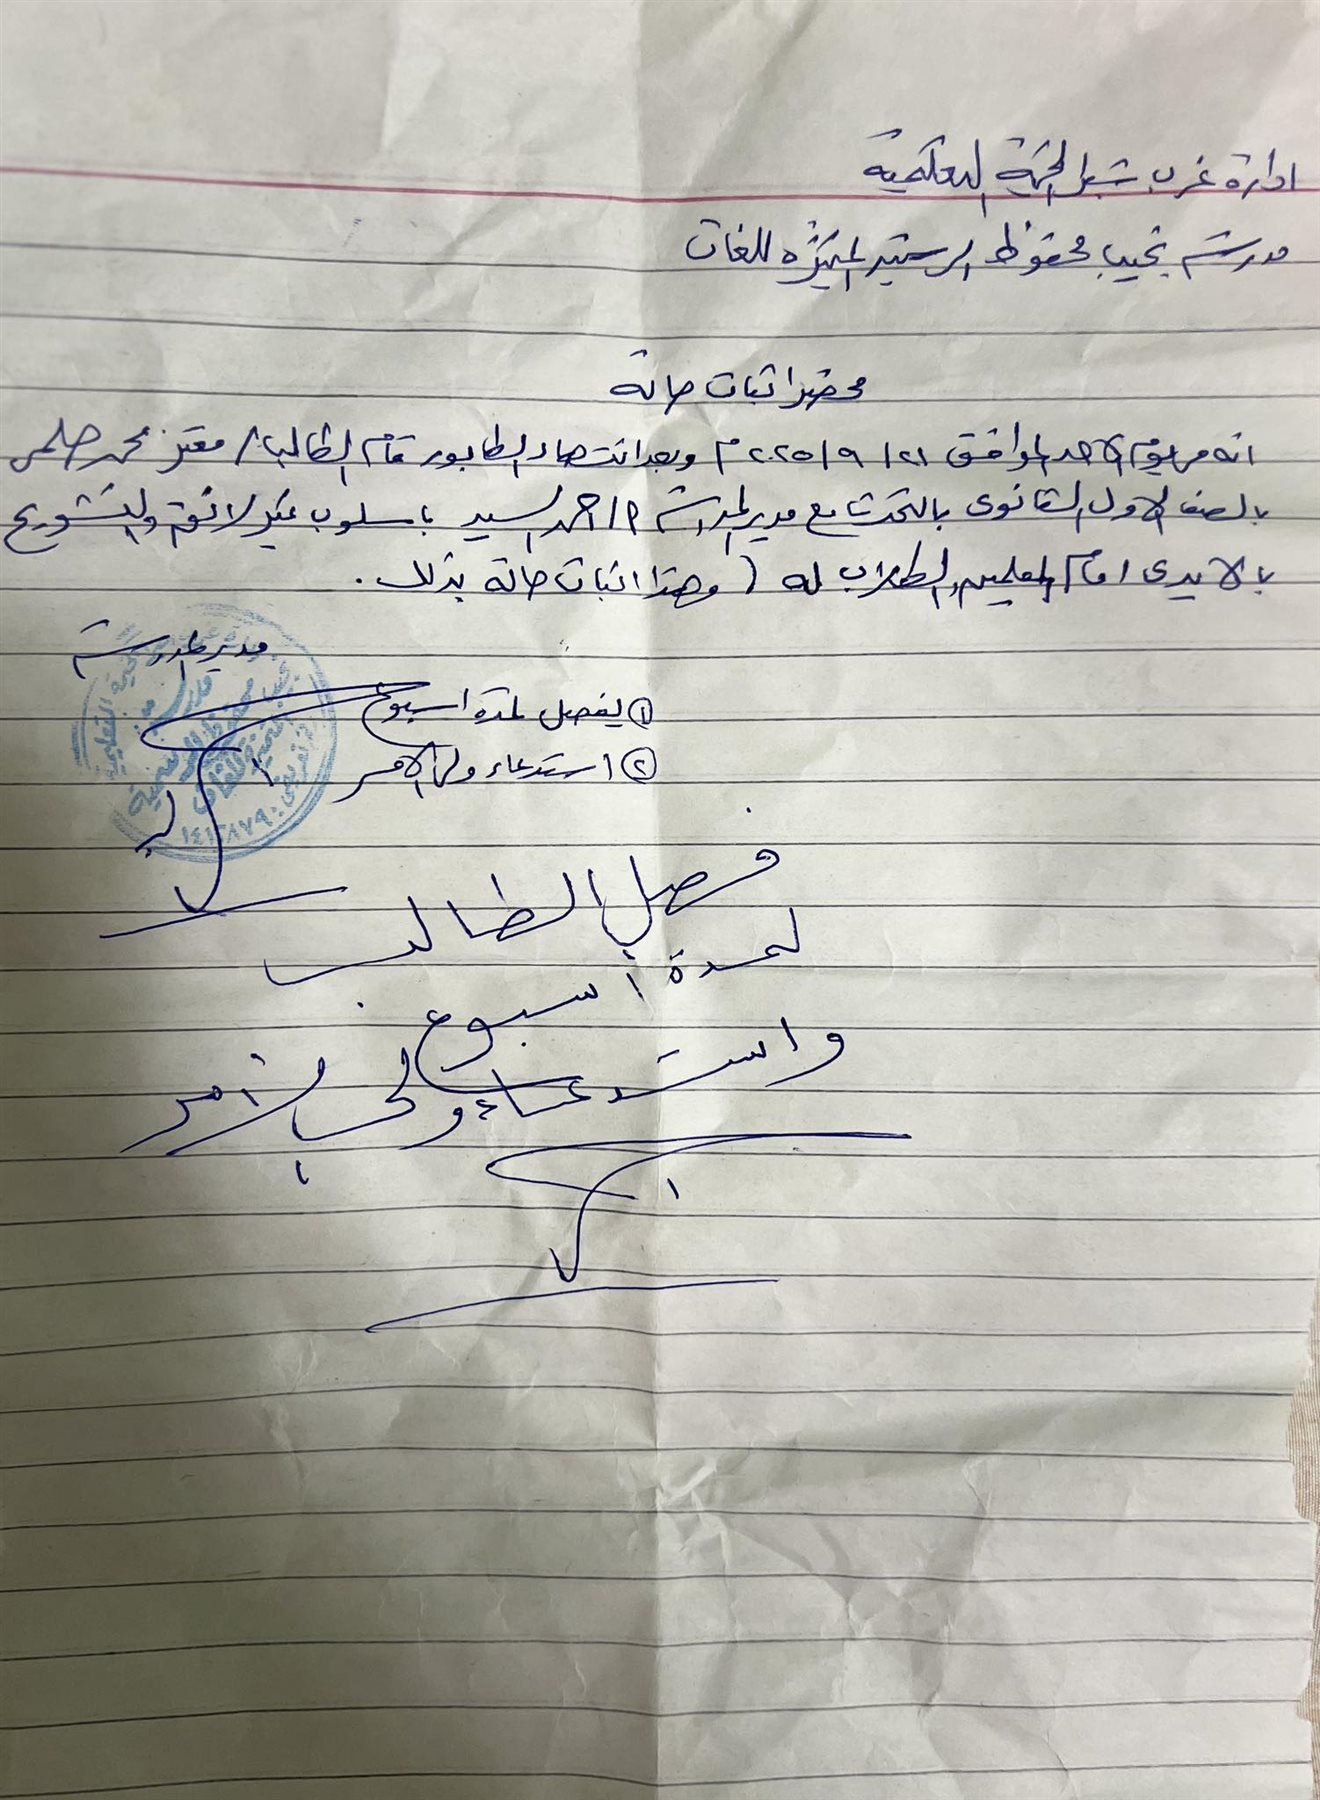 ادارة غرب شبرا الخيمة التعليمية
مدرسة نجيب محفوظ الرسمية المتميزة للغات
محضر اثبات حالة
انه في يوم الاحد الموافق ٢١/ ٩/ ٢٠٢٥م وبعد انتهاء الطابور قام الطالب/ معتز محمد حلمى
بالصف الاول الثانوى بالتحدث مع مدير المدرسة م/ احمد السيد باسلوب غير لائق والتشويح
بالايدى امام المعلمين والطلاب له ( وهذا اثبات حالة بذلك .
مدير المدرسة
① يفصل لمدة اسبوع
② استدعاء ولى الامر
فصل الطالب
لمدة أسبوع
واستدعاء ولى الأمر
مدرسة
نجيب محفوظ الرسمية
المتميزة للغات